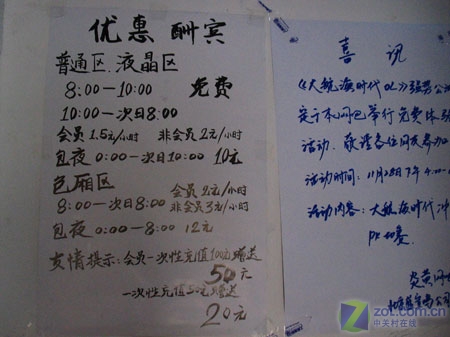 优惠 酬宾
普通区、液晶区
8:00—10:00 免费
10:00—次日8:00
会员 1.5元/小时 非会员 2元/小时
包夜 0:00—次日10:00 10元
包厢区 会员 2元/小时
8:00—次日8:00 非会员3元/小时
包夜 0:00—8:00 12元
友情提示:会员一次性充值100元赠送
50元
一次性充值50元赠送
20元
喜 讯
《大航海时代OL》
定于本网吧举行免费体
活动. 敬请各位网友参加
活动时间: 11月28日下午
活动内容: 大航海时代冲
PK大赛.
炎黄网
zol.com.cn
中关村在线